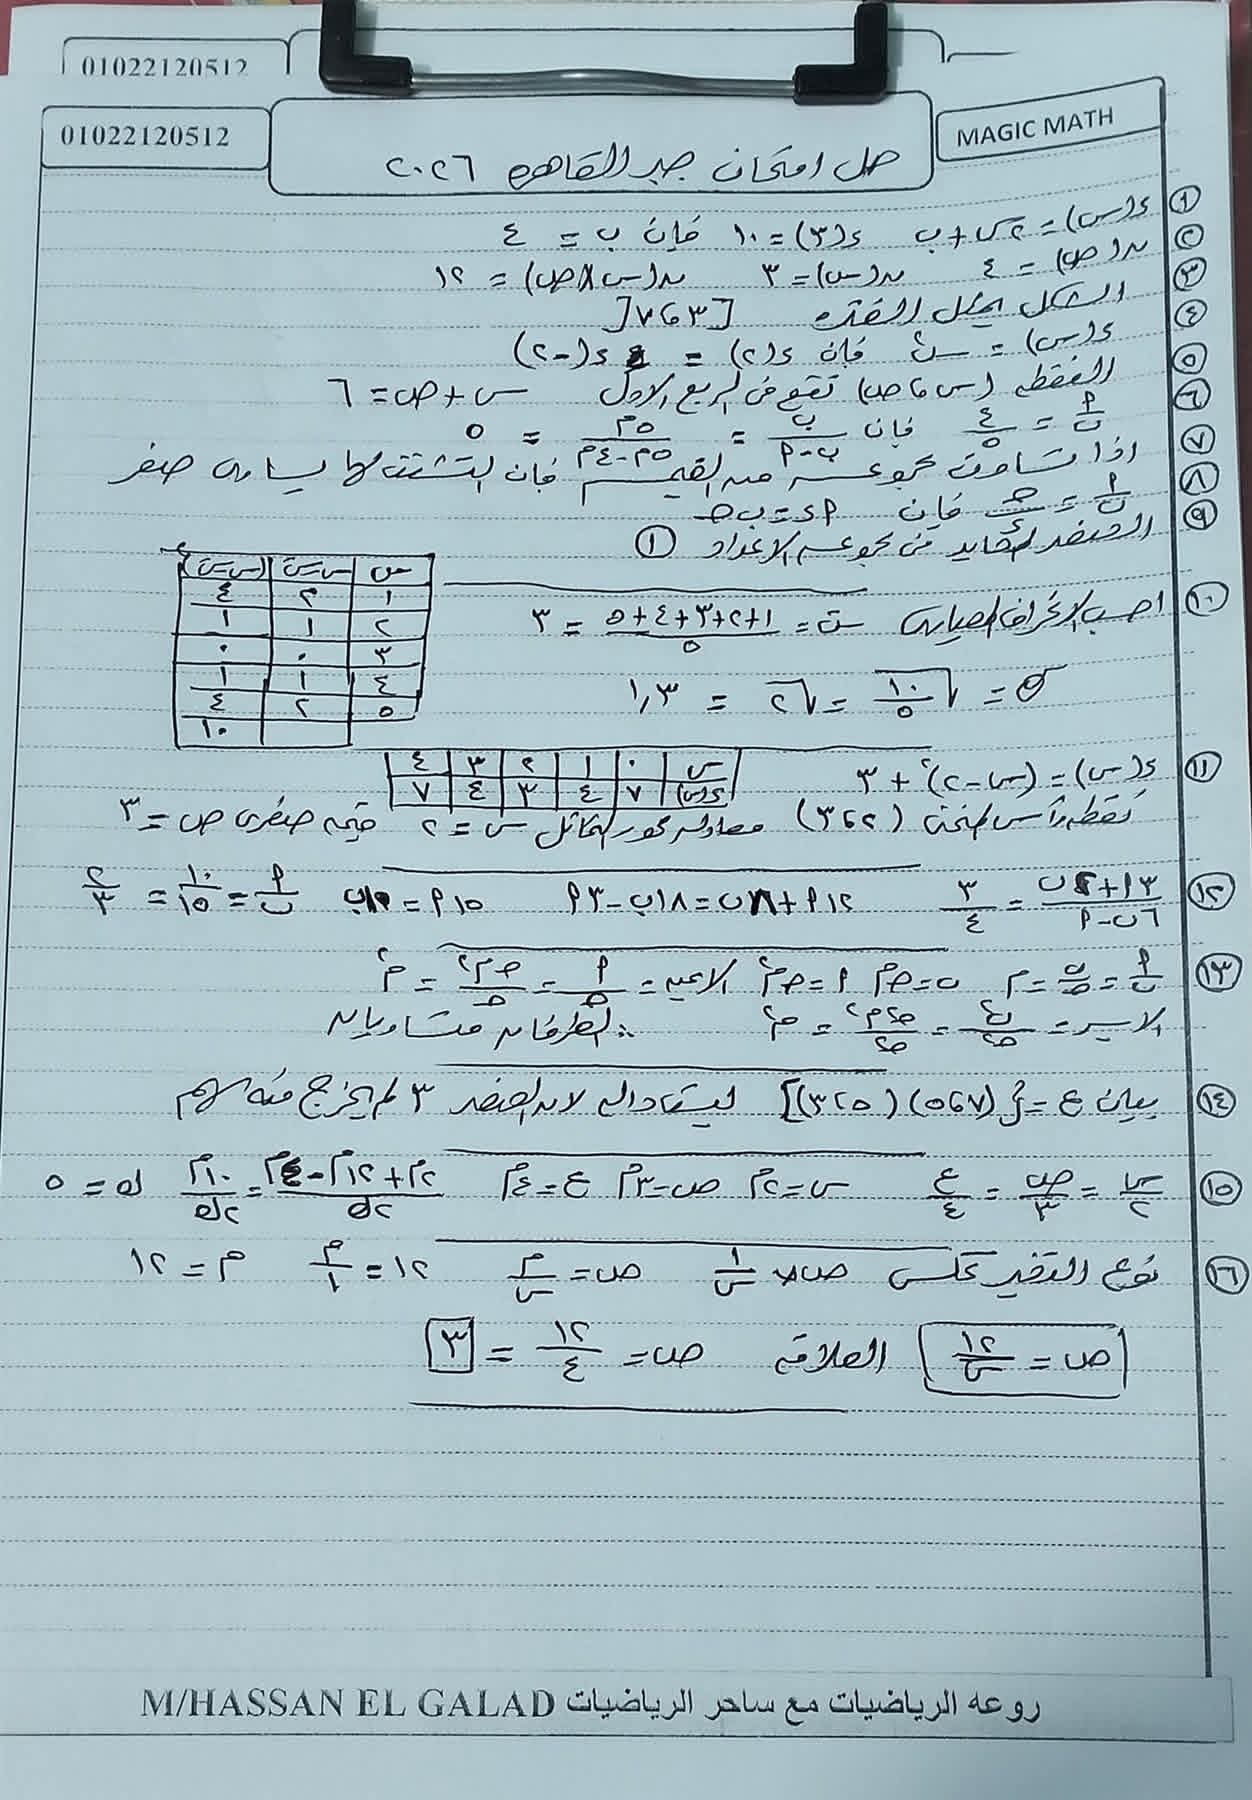 01022120512
01022120512
MAGIC MATH
حل امتحان جبر القاهرة ٢٠٢٦
① د(س) = ٢س + ب د(٣) = ١٠ فإن ب = ٤
② ن(ص) = ٤ ن(س) = ٣ ن(س × ص) = ١٢
③ الشكل يمثل الفترة [٣، ٧[
④ د(س) = س² فإن د(٢) = د(-٢)
⑤ النقطة (س، ص) تقع في الربع الاول س + ص = ٦
⑥ أ/ب = ٤/٥ فإن ب/(ب-أ) = ٥م/(٥م-٤م) = ٥
⑦ اذا تساوت مجموعة من القيم فإن التشتت لها يساوى صفر
⑧ أ/ب = ج/د فإن أد = ب ج
⑨ العنصر المحايد في مجموعة الاعداد ①
⑩ احسب الانحراف المعيارى س̄ = (١+٢+٣+٤+٥)/٥ = ٣
س | س-س̄ | (س-س̄)²
١ | ٢ | ٤
٢ | ١ | ١
٣ | ٠ | ٠
٤ | ١ | ١
٥ | ٢ | ٤
١٠
σ = √(١٠/٥) = √٢ = ١,٣
⑪ د(س) = (س-٢)² + ٣
س | ٠ | ١ | ٢ | ٣ | ٤
د(س) | ٧ | ٤ | ٣ | ٤ | ٧
نقطة رأس المنحنى (٢، ٣) معادلة محور التماثل س = ٢ قيمة صغرى ص = ٣
⑫ (٣أ+٢ب)/(٦ب-أ) = ٣/٤ ١٢أ+٨ب = ١٨ب-٣أ ١٥أ = ١٠ب أ/ب = ١٠/١٥ = ٢/٣
⑬ أ/ب = ب/ج = م ب = ج م أ = ج م² الايمن = أ/ج = ج م²/ج = م²
الايسر = ب²/ج² = ج²م²/ج² = م² ∴ الطرفان متساويان
⑭ بيان ع = {(٧، ٥)(٢، ٣)} ليست دالة لان العنصر ٣ لم يخرج منه سهم
⑮ س/٢ = ص/٣ = ع/٤ س = ٢م ص = ٣م ع = ٤م (٢م+١٢م-٤م)/٢ك = ١٠م/٢ك ك = ٥
⑯ نوع التغير عكسى ص ∝ ١/س ص = م/س ١٢ = م/١ م = ١٢
ص = ١٢/س العلاقة ص = ١٢/٤ = ٣
M/HASSAN EL GALAD روعه الرياضيات مع ساحر الرياضيات